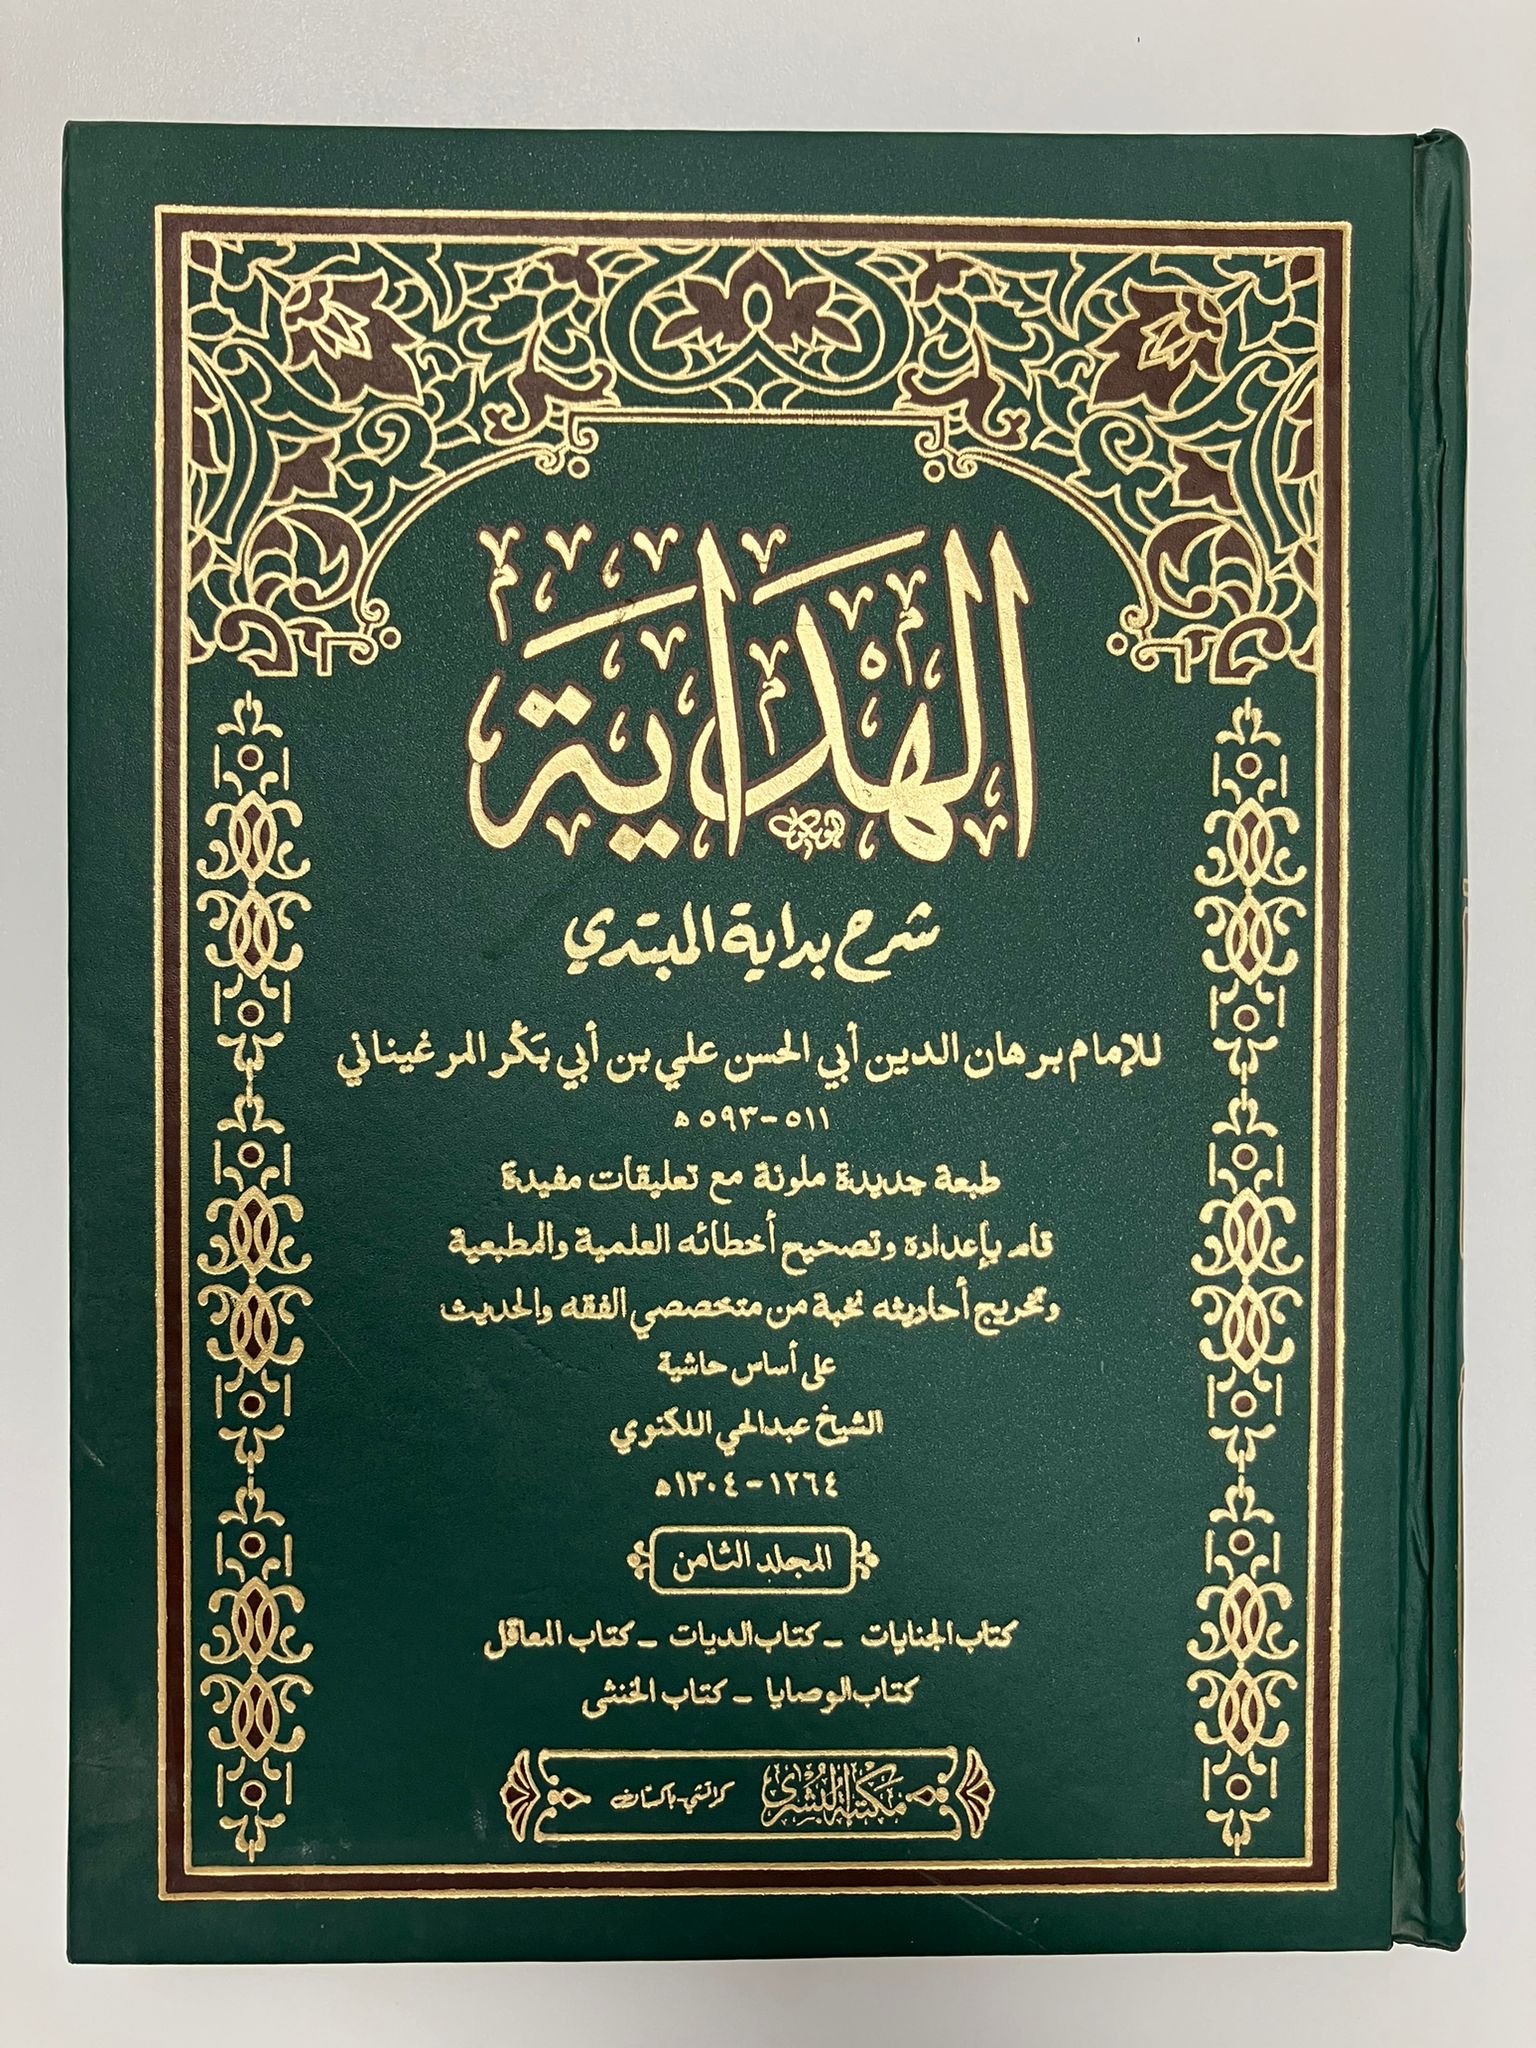 الهداية
شرح بداية المبتدي
للإمام برهان الدين أبي الحسن علي بن أبي بَكْر المرغيناني
٥١١-٥٩٣ه
طبعة جديدة ملونة مع تعليقات مفيدة
قام بإعداده وتصحيح أخطائه العلمية والمطبعية
وتخريج أحاديثه نخبة من متخصصي الفقه والحديث
على أساس حاشية
الشيخ عبدالحي اللكنوي
١٢٦٤-١٣٠٤ه
المجلد الثامن
كتاب الجنايات - كتاب الديات - كتاب المعاقل
كتاب الوصايا - كتاب الخنثى
مكتبة البشرى كراتشي-باكستان